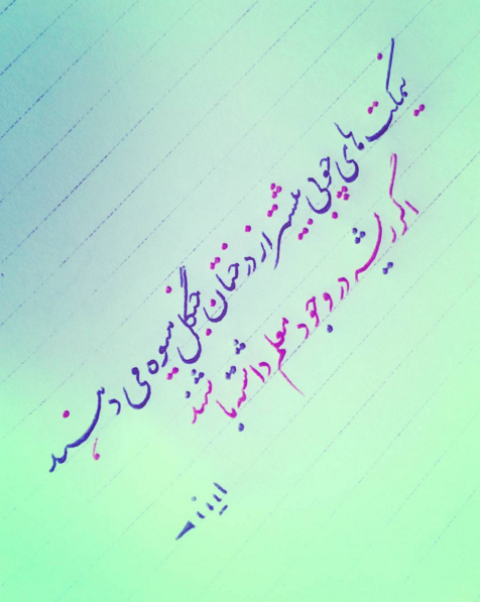 نیمکت های چوبی بیشتر از درختان جنگل میوه می دهند
اگر ریشه در وجود معلم داشته باشند